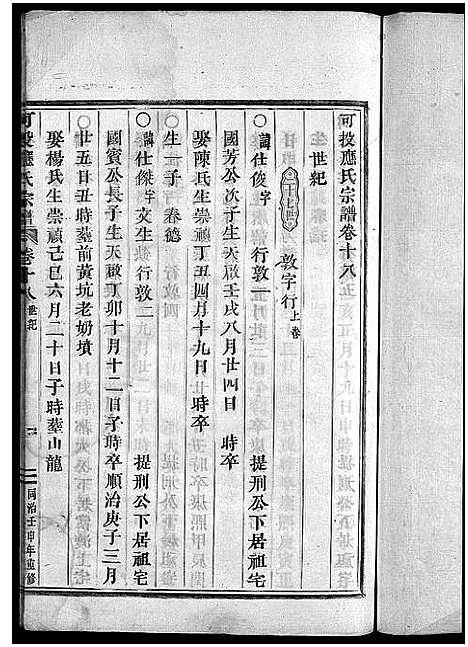 可投應氏宗譜卷十八
世紀
二十七世 敦字行上卷
○諱仕俊字 行敦一 提刑公下居祖宅
國芳公次子生天啟壬戌八月廿四日 時卒
娶陳氏生崇禎丁丑四月十九日 時卒
生一子 春德
○諱仕傑字文生 行敦二 提刑公下居祖宅
國賓公長子生天啟丁卯十月十二日子時卒順治庚子三月
廿五日丑時塟前黃坑老奶墳
娶楊氏生崇禎己巳六月二十日子時塟山龍
可投應氏宗譜 卷十八 世紀 一 同治壬申年重修